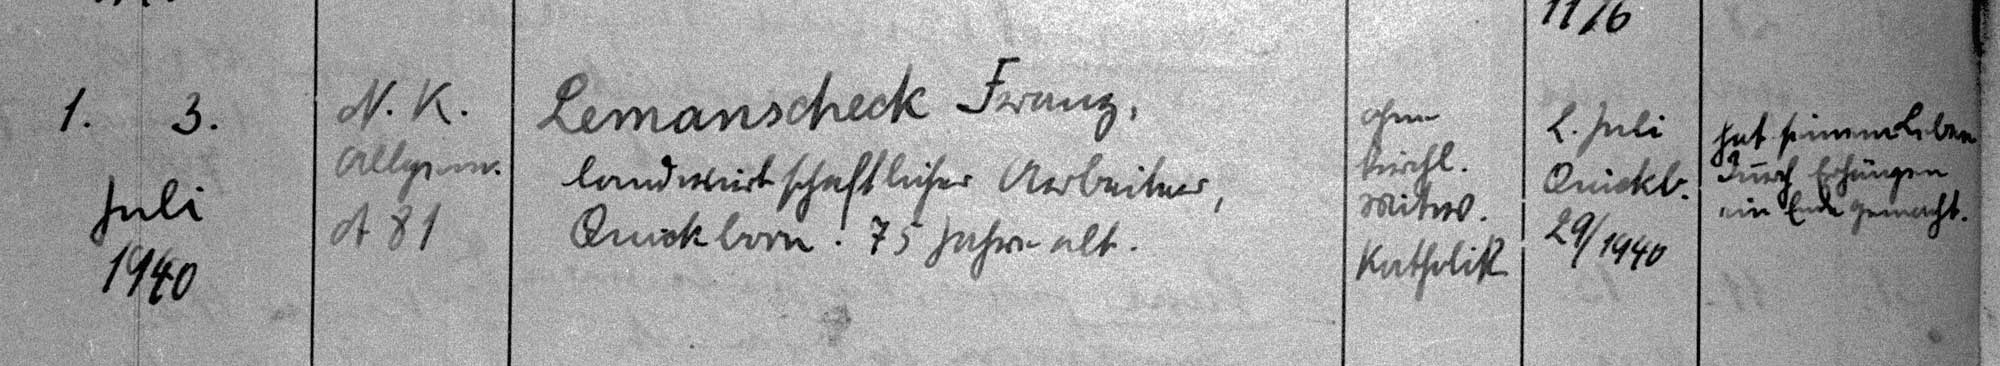 11/6
1. 3.
Juli
1940
N. K.
Allgem.
A 81
Lemanscheck Franz,
landwirtschaftlicher Arbeiter,
Quickborn. 75 Jahre alt.
ohne
kirchl.
Mitw.
Katholik
2. Juli
Quickb.
29/1940
hat seinem Leben
durch Erhängen
ein Ende gemacht.